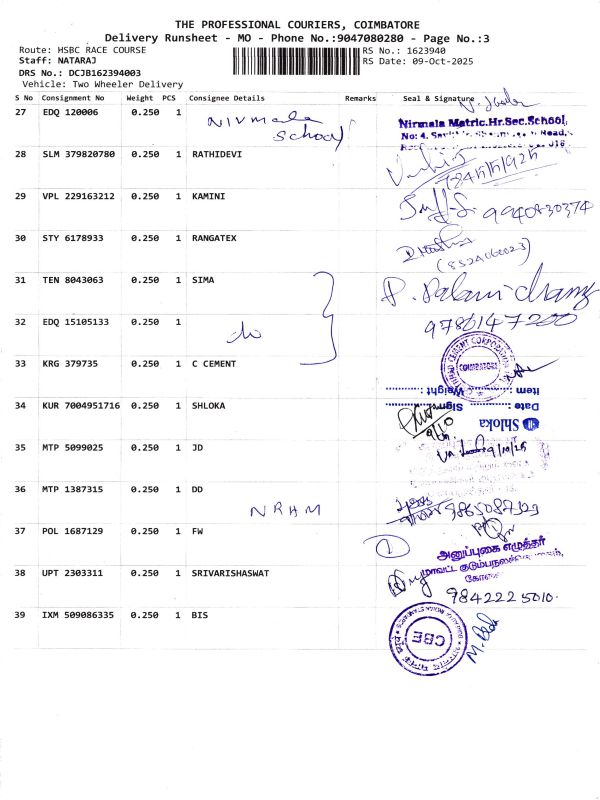 THE PROFESSIONAL COURIERS, COIMBATORE
Delivery Runsheet - MO - Phone No.:9047080280 - Page No.:3
Route: HSBC RACE COURSE
RS No.: 1623940
Staff: NATARAJ
RS Date: 09-Oct-2025
DRS No.: DCJB162394003
Vehicle: Two Wheeler Delivery
S No Consignment No Weight PCS Consignee Details Remarks Seal & Signature
27 EDQ 120006 0.250 1 Nirmala
School
Nirmala Matric.Hr.Sec.School,
No: 4, Road,
28 SLM 379820780 0.250 1 RATHIDEVI
29 VPL 229163212 0.250 1 KAMINI
9940830374
30 STY 6178933 0.250 1 RANGATEX
(8524060023)
31 TEN 8043063 0.250 1 SIMA
P. Palanichamy
32 EDQ 15105133 0.250 1
9786147200
33 KRG 379735 0.250 1 C CEMENT
COIMBATORE
item : Weight :
34 KUR 7004951716 0.250 1 SHLOKA
Date : Sign :
Shloka
9/10
35 MTP 5099025 0.250 1 JD
9/10/25
36 MTP 1387315 0.250 1 DD
NRHM
9865087129
37 POL 1687129 0.250 1 FW
1
அனுப்புகை எழுத்தர்
மாவட்ட குடும்பநலச்
38 UPT 2303311 0.250 1 SRIVARISHASWAT
9842225010.
39 IXM 509086335 0.250 1 BIS
CBE